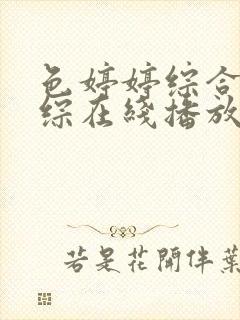 色婷婷综合
综在线播放
若是花開伴葉